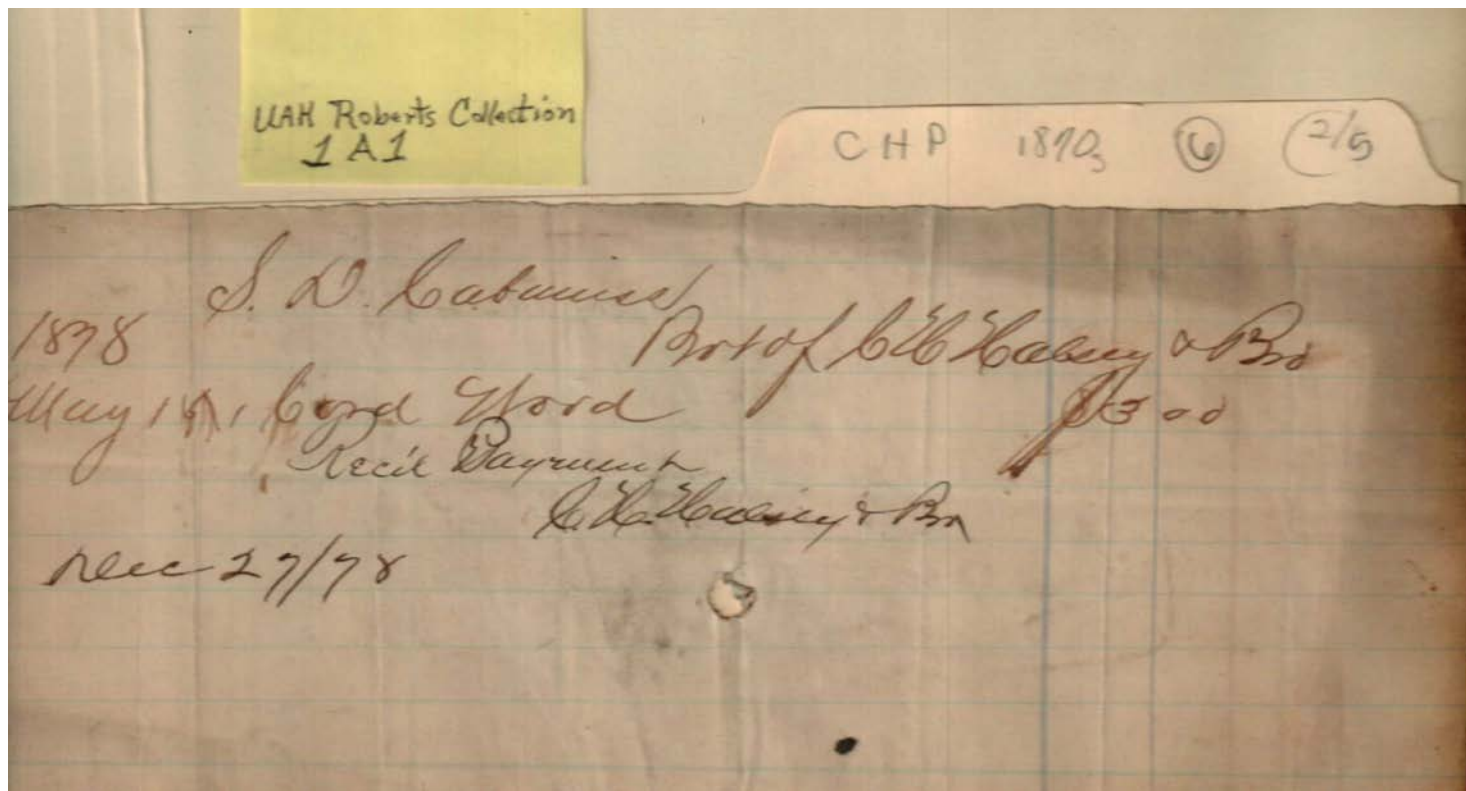 UAH Roberts Collection
1 A 1
CHP 1870s 6 2/5
S. D. Cabaniss
1878 Bot of C H Halsey & Bro
May 1 Cord Wood $3 00
Recd Payment
C. H. Halsey & Bro
Dec 27/78